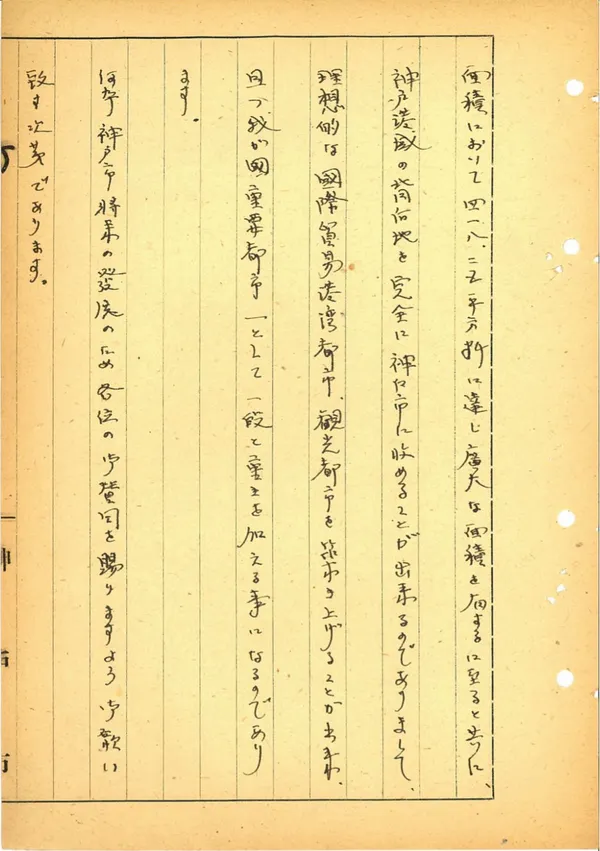 面積において四一八.二五平方粁に達し廣大な面積を有するに至ると共に、
神戸港域の背后地を完全に神戸市に收めることが出来るのでありまして、
理想的な國際貿易港湾都市、観光都市を築き上げることが出来、
且つ我が國重要都市一として一段と重さを加える事になるのであり
ます。
何卒神戸市将来の發展のため各位の御賛同を賜りますよう御願い
致す次第であります。
神戸市